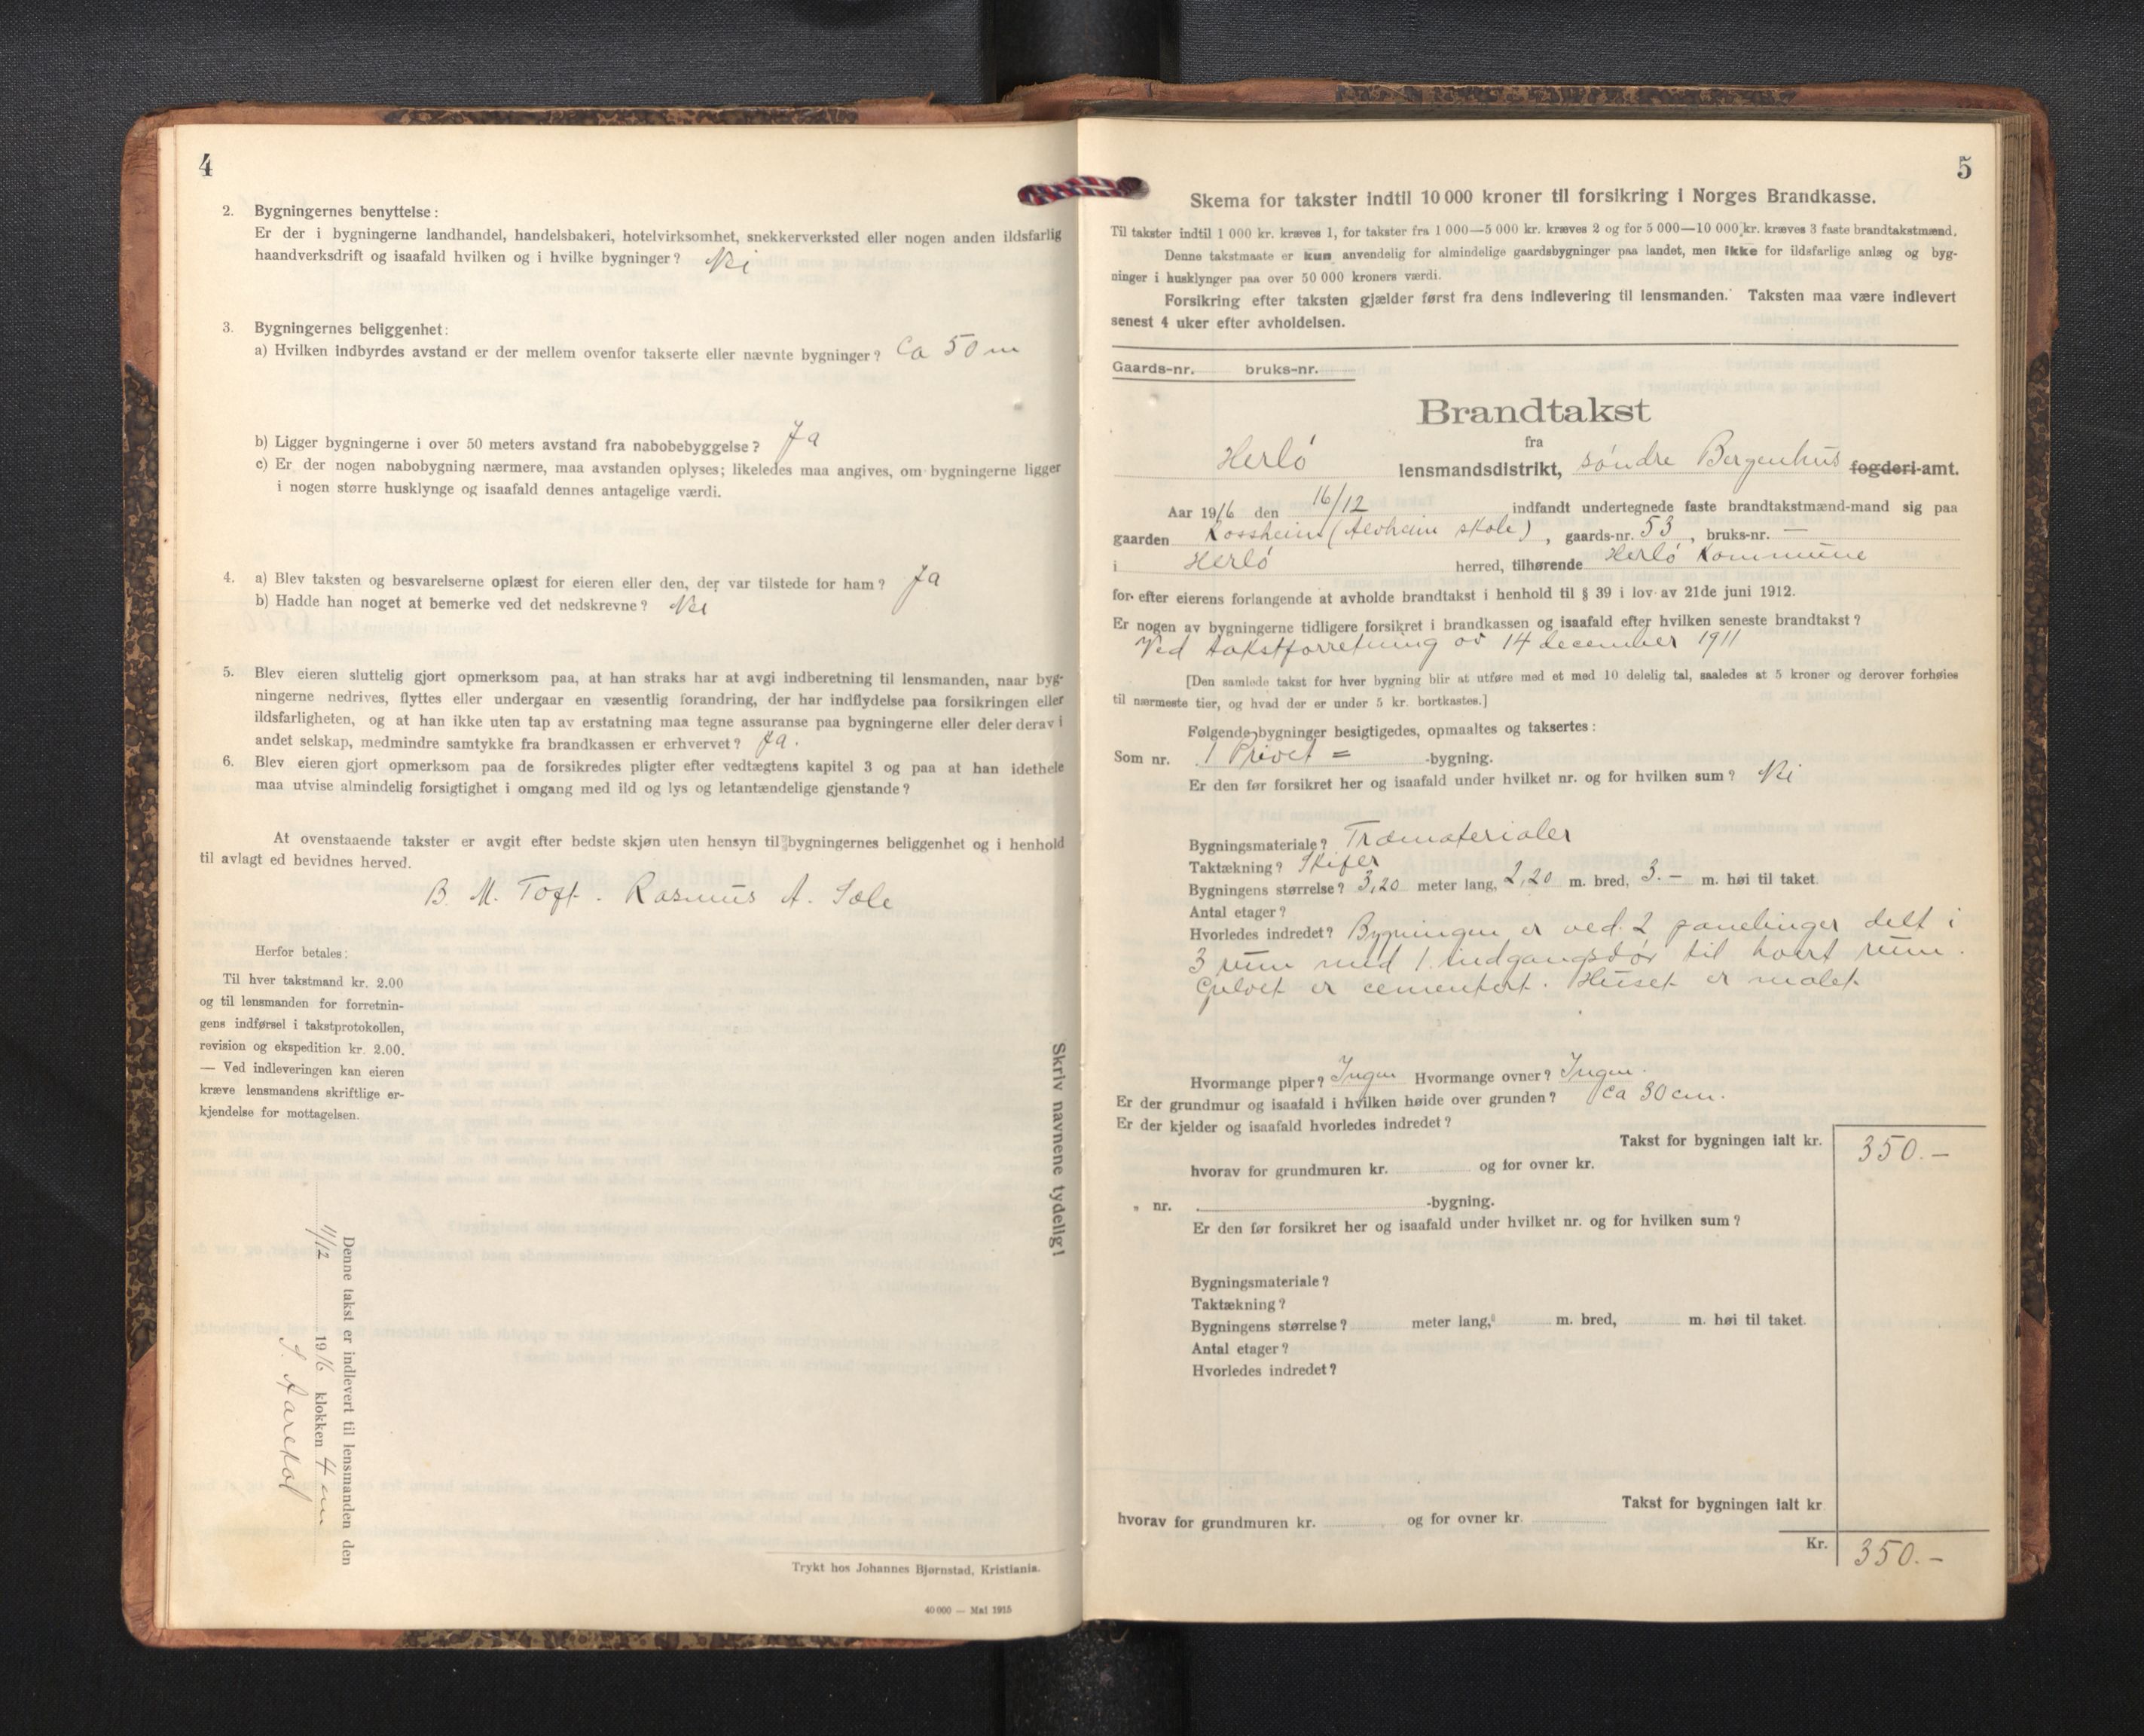 4
2. Bygningernes benyttelse:
Er der i bygningerne landhandel, handelsbakeri, hotelvirksomhet, snekkerverksted eller nogen anden ildsfarlig
haandverksdrift og isaafald hvilken og i hvilke bygninger? Nei
3. Bygningernes beliggenhet:
a) Hvilken indbyrdes avstand er der mellem ovenfor takserte eller nævnte bygninger? Ca 50 m
b) Ligger bygningerne i over 50 meters avstand fra nabobebyggelse? Ja
c) Er der nogen nabobygning nærmere, maa avstanden oplyses; likeledes maa angives, om bygningerne ligger
i nogen større husklynge og isaafald dennes antagelige værdi.
4. a) Blev taksten og besvarelserne oplæst for eieren eller den, der var tilstede for ham? Ja
b) Hadde han noget at bemerke ved det nedskrevne? Nei
5. Blev eieren sluttelig gjort opmerksom paa, at han straks har at avgi indberetning til lensmanden, naar byg-
ningerne nedrives, flyttes eller undergaar en væsentlig forandring, der har indflydelse paa forsikringen eller
ildsfarligheten, og at han ikke uten tap av erstatning maa tegne assuranse paa bygningerne eller deler derav i
andet selskap, medmindre samtykke fra brandkassen er erhvervet? Ja.
6. Blev eieren gjort opmerksom paa de forsikredes pligter efter vedtægtens kapitel 3 og paa at han idethele
maa utvise almindelig forsigtighet i omgang med ild og lys og letantændelige gjenstande?
At ovenstaaende takster er avgit efter bedste skjøn uten hensyn til bygningernes beliggenhet og i henhold
til avlagt ed bevidnes herved.
B. M. Toft. Rasmus A. Sæle
Herfor betales:
Til hver takstmand kr. 2.00
og til lensmanden for forretnin-
gens indførsel i takstprotokollen,
revision og ekspedition kr. 2.00.
— Ved indleveringen kan eieren
kræve lensmandens skriftlige er-
kjendelse for mottagelsen.
Skriv navnene tydelig!
Denne takst er indlevert til lensmanden den
11/12 1916 klokken 4 em
Trykt hos Johannes Bjørnstad, Kristiania.
40 000 — Mai 1915
5
Skema for takster indtil 10 000 kroner til forsikring i Norges Brandkasse.
Til takster indtil 1 000 kr. kræves 1, for takster fra 1 000—5 000 kr. kræves 2 og for 5 000—10 000 kr. kræves 3 faste brandtakstmænd.
Denne takstmaate er kun anvendelig for almindelige gaardsbygninger paa landet, men ikke for ildsfarlige anlæg og byg-
ninger i husklynger paa over 50 000 kroners værdi.
Forsikring efter taksten gjælder først fra dens indlevering til lensmanden. Taksten maa være indlevert
senest 4 uker efter avholdelsen.
Gaards-nr. bruks-nr.
Brandtakst
fra
Herlö lensmandsdistrikt, söndre Bergenhus fogderi-amt.
Aar 1916 den 16/12 indfandt undertegnede faste brandtakstmænd-mand sig paa
gaarden Rossheim (Alvheim skole), gaards-nr. 53, bruks-nr. —
i Herlö herred, tilhørende Herlö Kommune
for efter eierens forlangende at avholde brandtakst i henhold til § 39 i lov av 21de juni 1912.
Er nogen av bygningerne tidligere forsikret i brandkassen og isaafald efter hvilken seneste brandtakst?
Ved takstforretning av 14 december 1911
[Den samlede takst for hver bygning blir at utføre med et med 10 delelig tal, saaledes at 5 kroner og derover forhøies
til nærmeste tier, og hvad der er under 5 kr. bortkastes.]
Følgende bygninger besigtigedes, opmaaltes og taksertes:
Som nr. 1 Privet = -bygning.
Er den før forsikret her og isaafald under hvilket nr. og for hvilken sum? Nei
Bygningsmateriale? Træmaterialer
Taktækning? Skifer
Bygningens størrelse? 3,20 meter lang, 2,20 m. bred, 3.— m. høi til taket.
Antal etager?
Hvorledes indredet? Bygningen er ved 2 panelinger delt i
3 rum med 1 indgangsdör til hvert rum.
Gulvet er cementert. Huset er malet.
Hvormange piper? Ingen Hvormange ovner? Ingen.
Er der grundmur og isaafald i hvilken høide over grunden? Ca 30 cm.
Er der kjelder og isaafald hvorledes indredet?
Takst for bygningen ialt kr. 350.—
hvorav for grundmuren kr. og for ovner kr.
„ nr. -bygning.
Er den før forsikret her og isaafald under hvilket nr. og for hvilken sum?
Bygningsmateriale?
Taktækning?
Bygningens størrelse? meter lang, m. bred, m. høi til taket.
Antal etager?
Hvorledes indredet?
Takst for bygningen ialt kr
hvorav for grundmuren kr. og for ovner kr.
Kr. 350.—